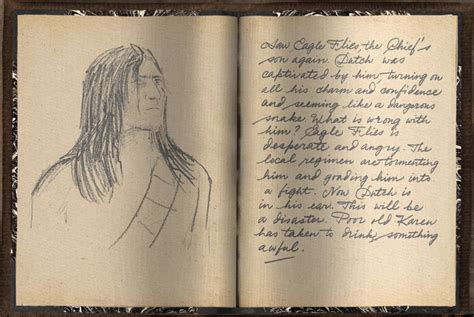 Saw Eagle Flies, the Chief's
son again. Dutch was
captivated by him turning on
all his charm and confidence
and seeming like a dangerous
snake. What is wrong with
him? Eagle Flies is
desperate and angry. The
local regimen are tormenting
him and goading him into
a fight. Now Dutch is
in his ear. This will be
a disaster. Poor old Karen
has taken to drink, something
awful.